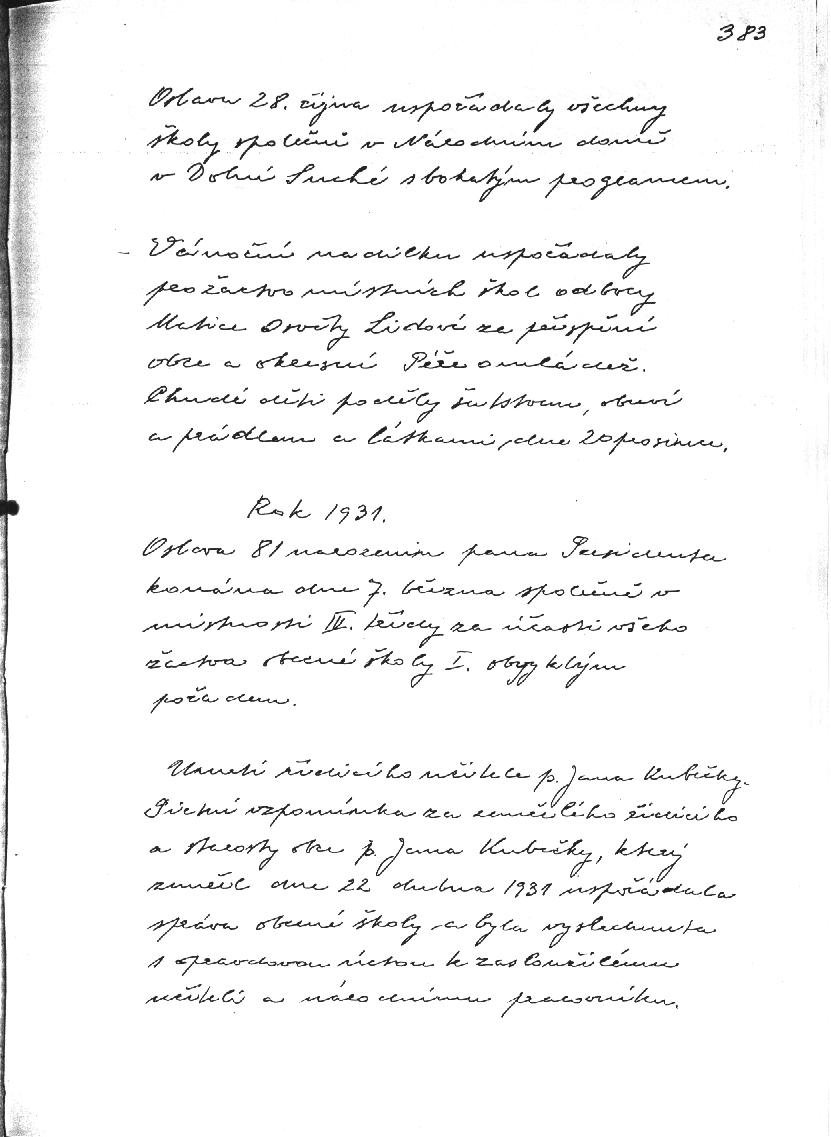 383
Oslavu 28. října uspořádaly všechny
školy společně v Národním domě
v Dolní Suché s bohatým programem.
- Vánoční nadílku uspořádaly
pro žactvo místních škol odbory
Matice Osvěty Lidové za přispění
obce a okresní Péče o mládež.
Chudé děti poděly šatstvem, obuví
a prádlem a látkami, dne 20 prosince.
Rok 1931.
Oslava 81 narozenin pana Presidenta
konána dne 7. března společně v
místnosti III. třídy za účasti všeho
žactva obecné školy I. obvyklým
pořadem.
Úmrtí řídícího učitele p. Jana Kubičky.
Pietní vzpomínka za zemřelého řídícího
a starosty obce p. Jana Kubičky, který
zemřel dne 22 dubna 1931 uspořádala
správa obecné školy a byla vyslechnuta
s opravdovou úctou k zasloužilému
učiteli a národnímu pracovníku.